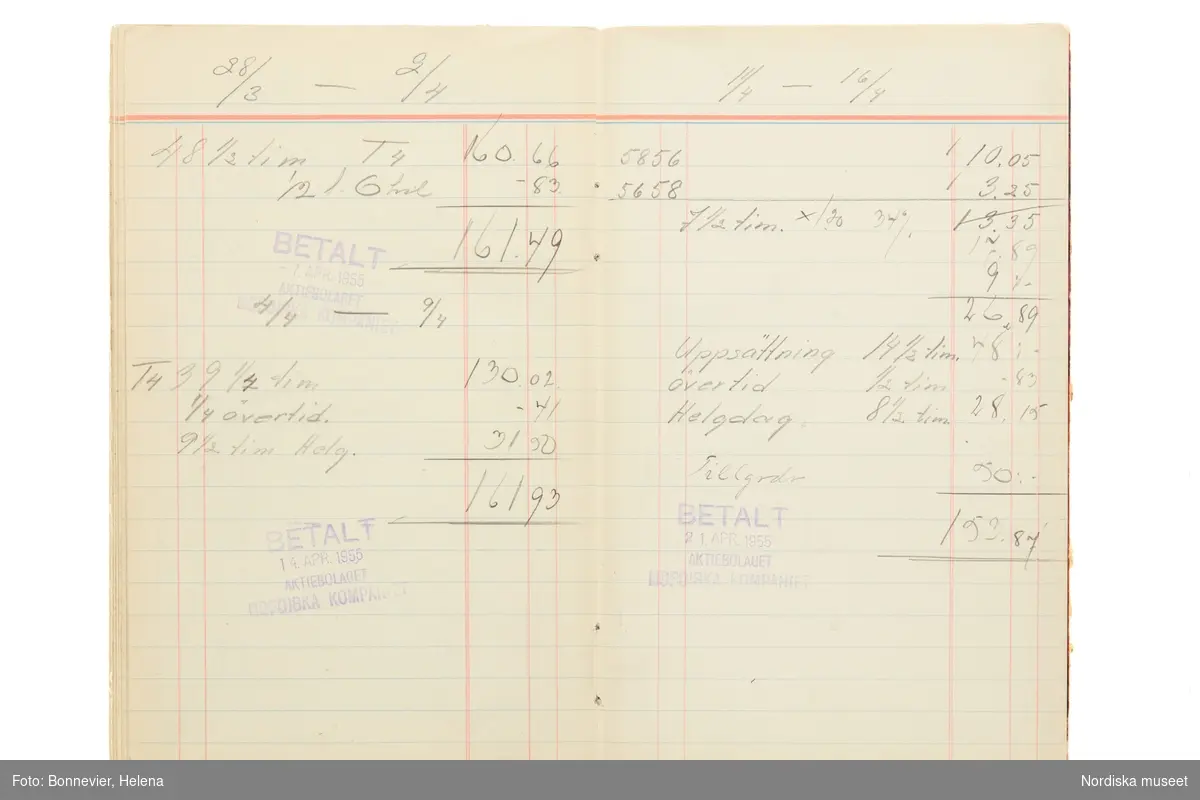 28/3 — 2/4
48 1/2 tim T4 160.66
1/2 t. -83
161.49
BETALT
-7. APR. 1955
AKTIEBOLAGET
NORDISKA KOMPANIET
4/4 — 9/4
T4 39 1/4 tim 130.02
1/4 övertid. -41
9 1/2 tim Helg. 31 50
161 93
BETALT
14. APR. 1955
AKTIEBOLAGET
NORDISKA KOMPANIET
11/4 — 16/4
5856 10.05
5658 3.25
7 1/2 tim. 13.35
.89
9 :-
26.89
Uppsättning 14 1/2 tim. 48 :-
övertid 1/2 tim -83
Helgdag. 8 1/2 tim. 28.15
50:-
153.87
BETALT
21. APR. 1955
AKTIEBOLAGET
NORDISKA KOMPANIET
Foto: Bonnevier, Helena
Nordiska museet